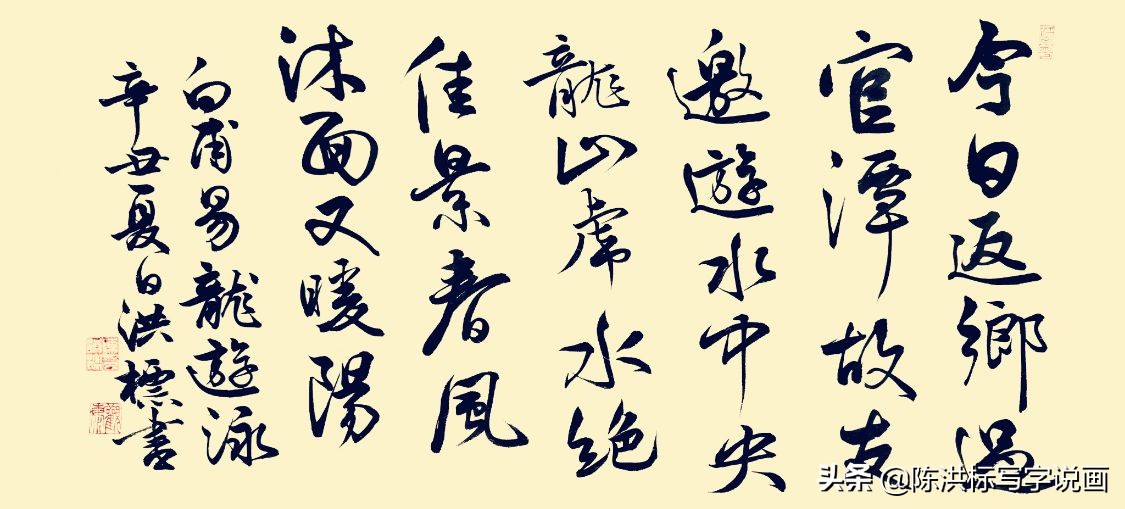 今日返鄉過
官潭故友
邀遊水中央
龍山虎水絕
佳景春風
沐面又暖陽
白甫易龍遊泳
辛丑夏日洪標書
头条 @陈洪标写字说画